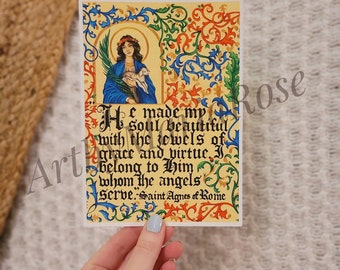 He made my
soul beautiful
with the jewels of
grace and virtue. I
belong to Him
whom the angels
serve. - Saint Agnes of Rome
Rose